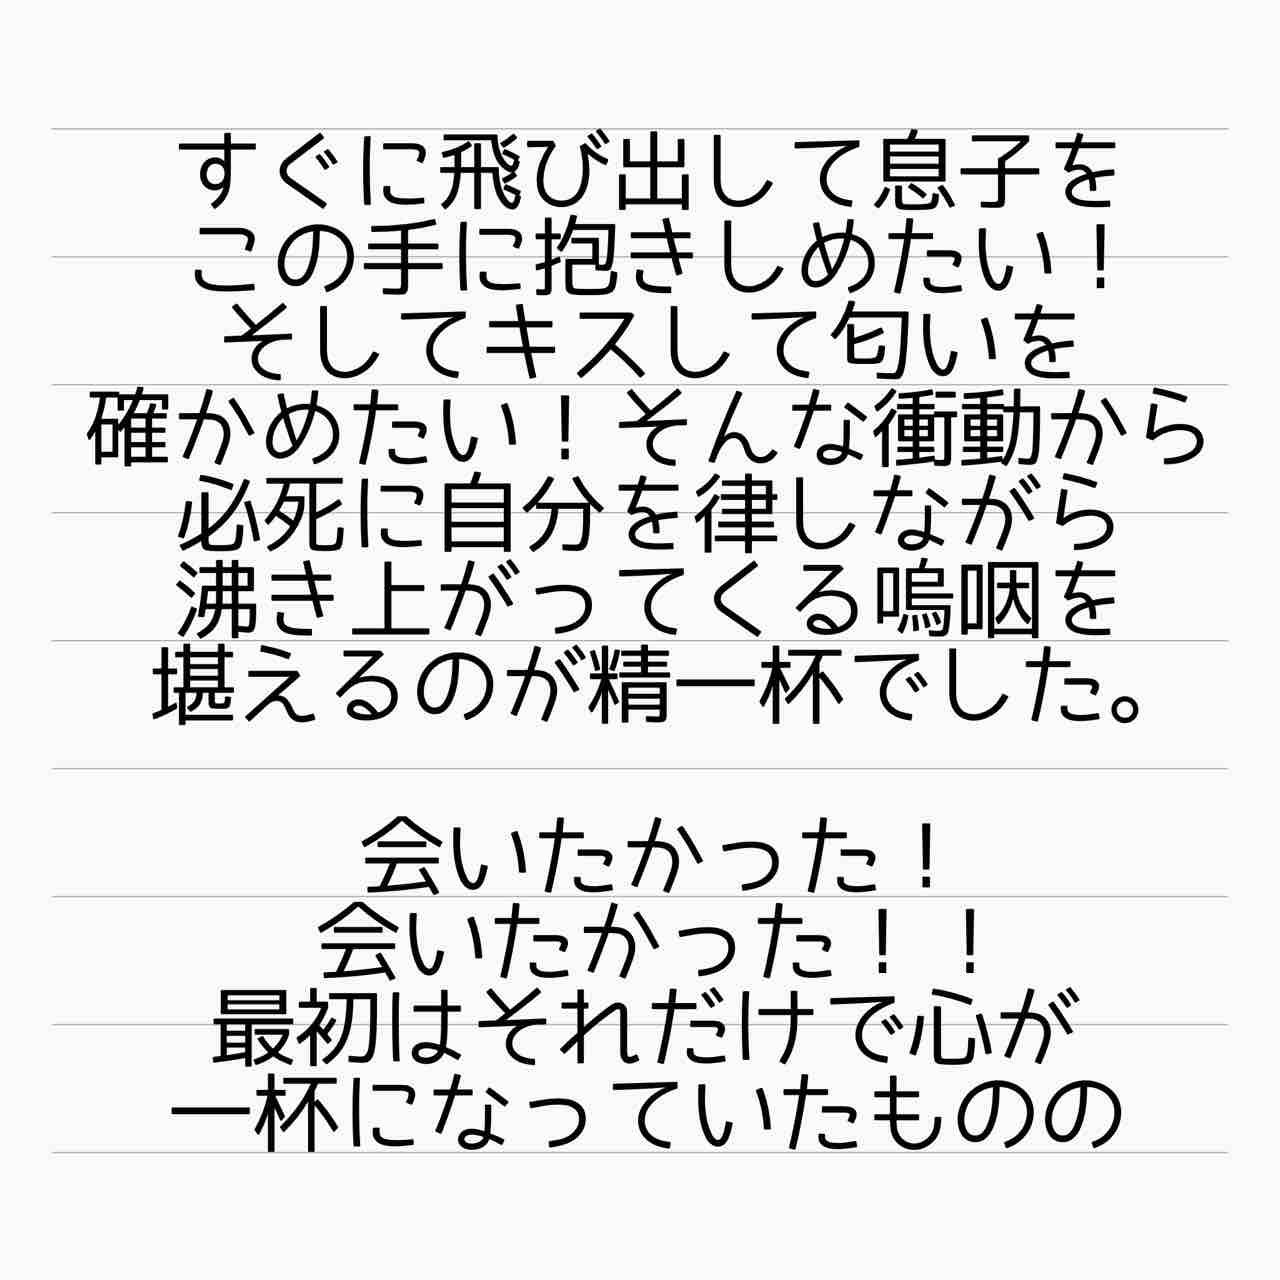 すぐに飛び出して息子を
この手に抱きしめたい！
そしてキスして匂いを
確かめたい！そんな衝動から
必死に自分を律しながら
沸き上がってくる嗚咽を
堪えるのが精一杯でした。
会いたかった！
会いたかった！！
最初はそれだけで心が
一杯になっていたものの